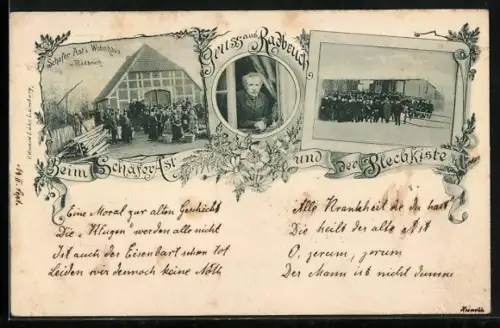 Schäfer Ast's Wohnhaus
in Radbruch
Gruss aus Radbruch
Beim Schäfer Ast und der Blechkiste
Eine Moral zur alten Geschicht
Die „Klugen" werden alle nicht
Ist auch der Eisenbart schon tot
Leiden wir dennoch keine Noth
Alle Krankheit die du hast
Die heilt der alte Ast
O, jerum, jerum
Der Mann ist nicht dumm